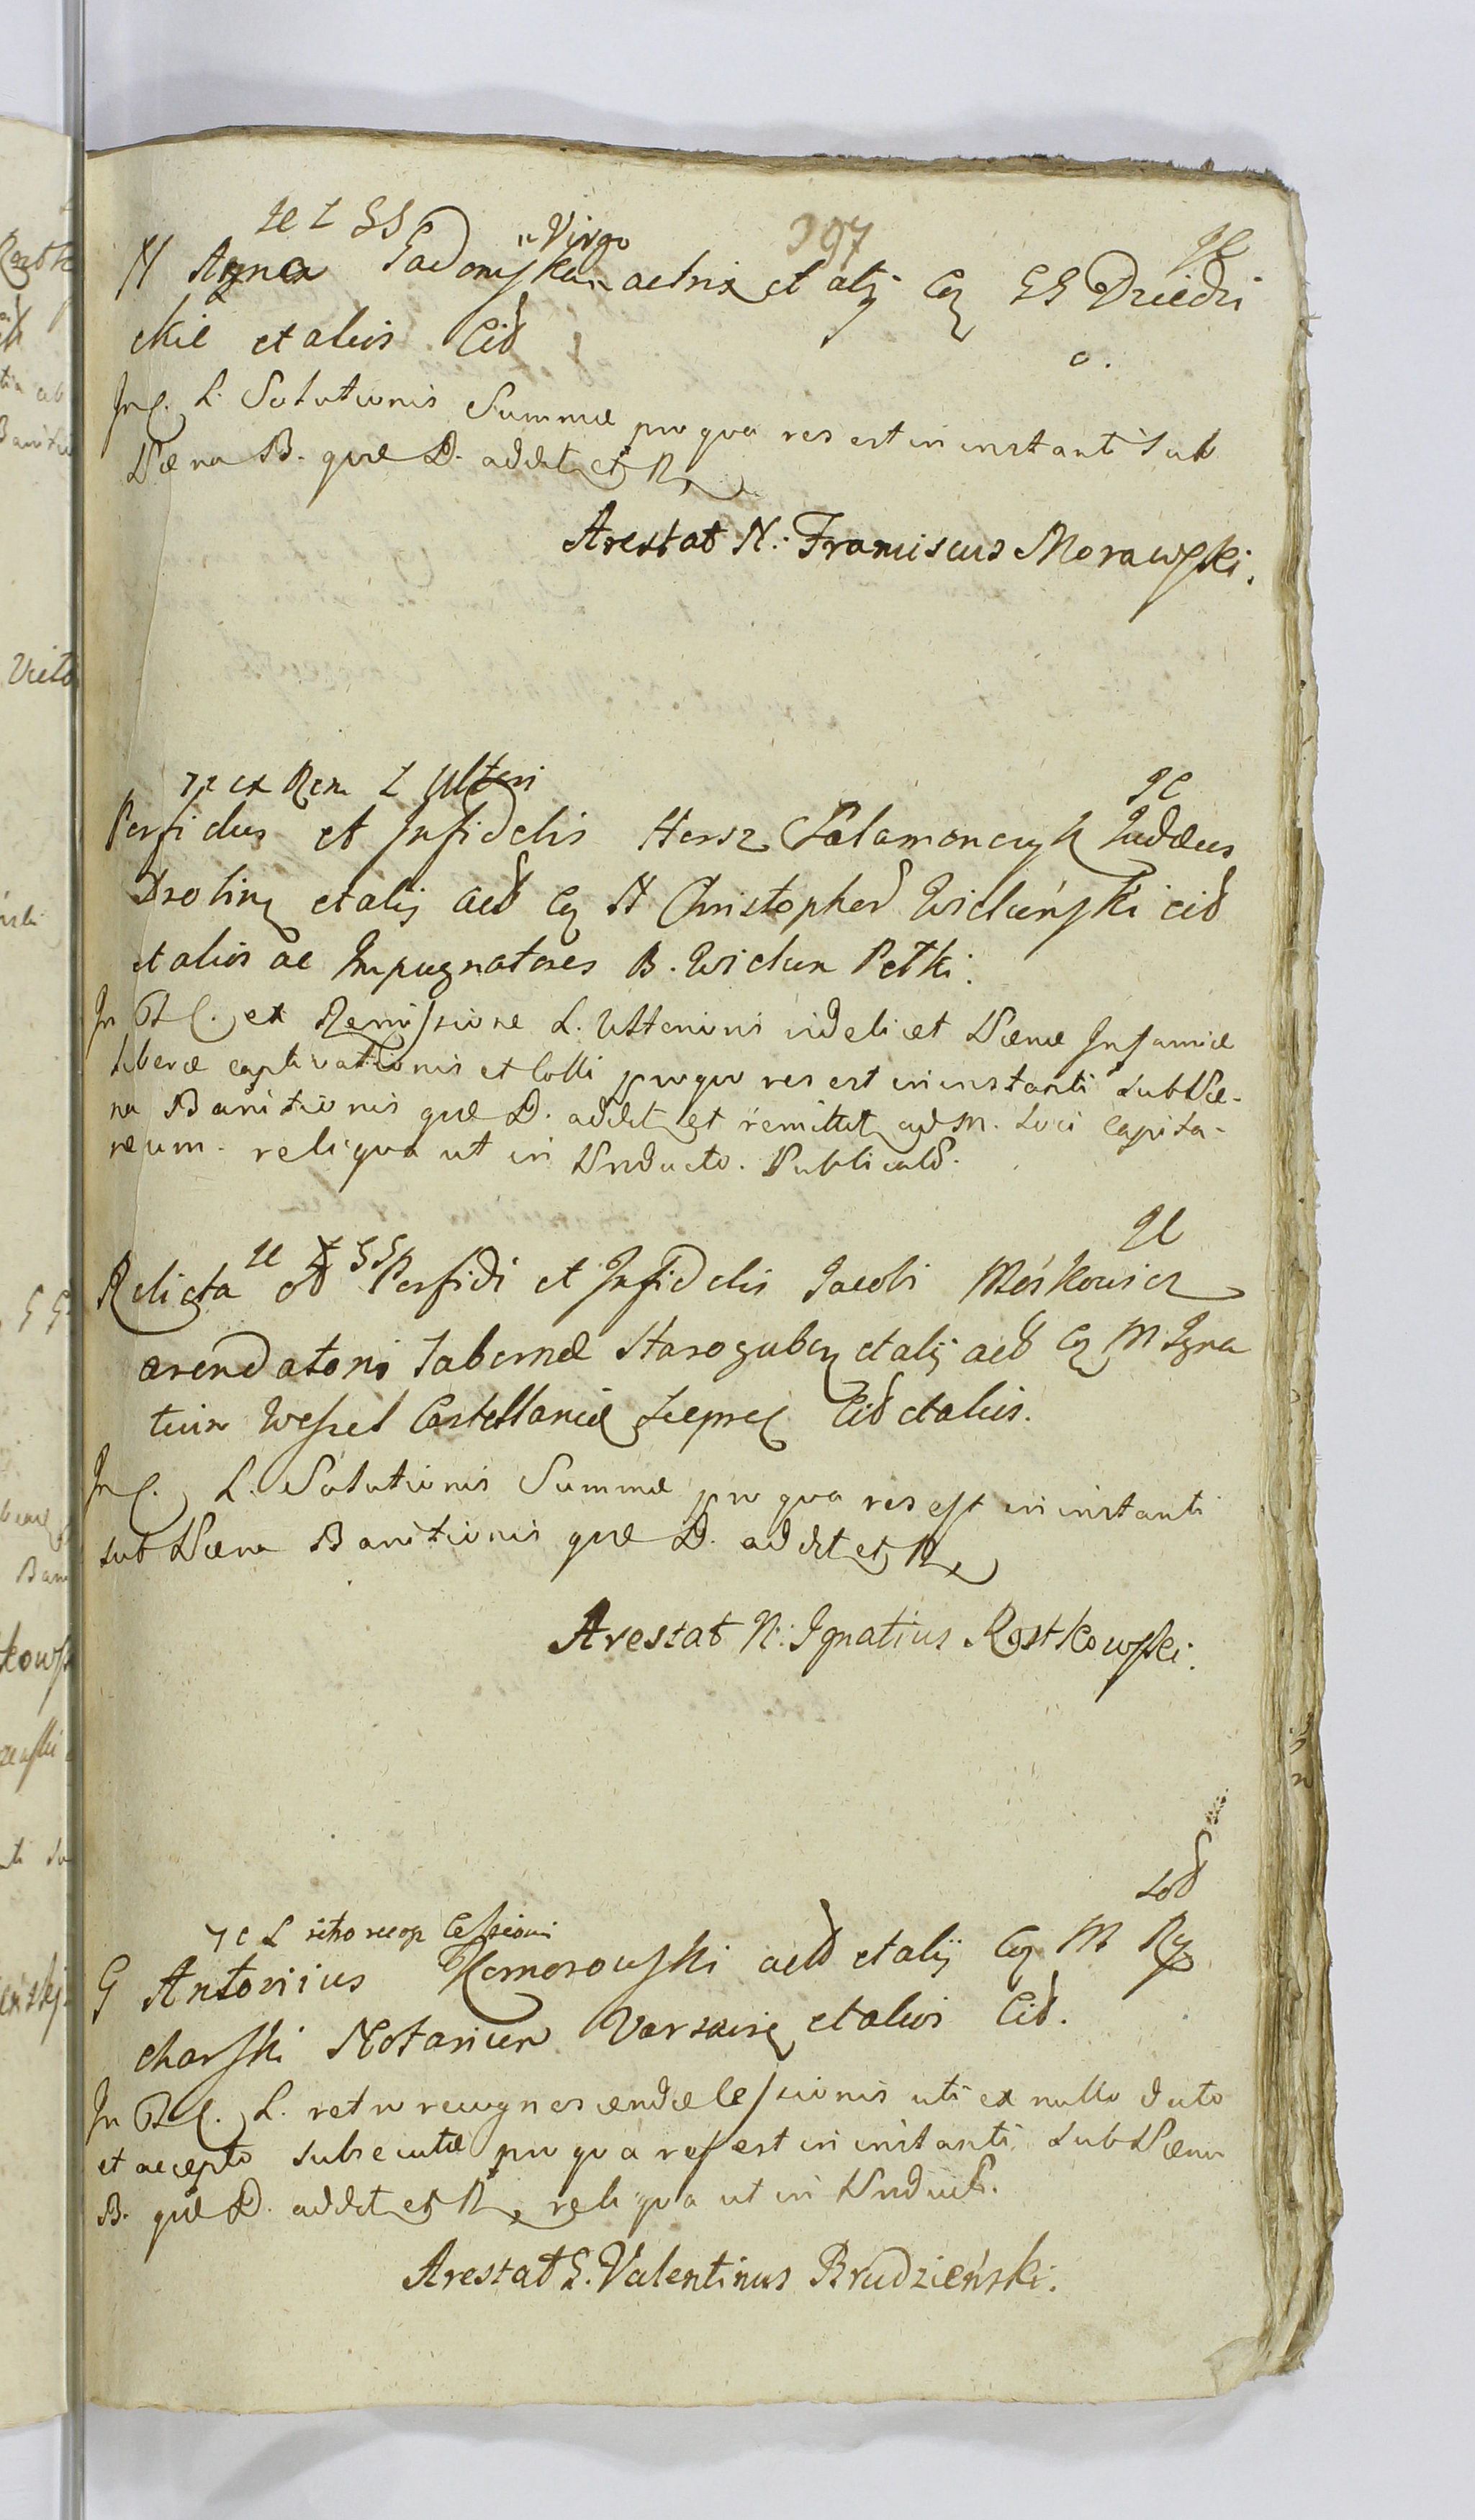 397
N Agna Sadowska Virgo actrix et alij Cq GG Dziedzi
ckie et alios Citt
In C. L. Solutionis Summæ pro qua res est in instanti sub
Pæna B. quæ D. addet et R
Arestat N: Franciscus Morawski.
ex Rem L Ulteri
Perfidus et Infidelis Hersz Salamonczyk Judæus
et alij actt Cq N Christophor Wieluński citt
et alios ac Impugnatores B.
In C. ex Remissione L. Ulterioris videlicet Pænæ Infamiæ
liberæ captivationis et Colli pro quo res est in instanti sub Pæ-
na Banitionis quæ D. addet et remittet ad M. Loci Capita-
neum. reliqua ut in Prducto. Publicatt.
SS
Relicta olt Perfidi et Infidelis Jacobi Mośkowicz
arendatoris Tabernæ et alij actt Cq M Igna
tium Wessel Castellanum et alios.
In C. L. Solutionis Summæ pro qua res est in instanti
sub Pæna Banitionis quæ D. addet et R
Arestat N: Ignatius Rostkowski.
L retro recog Cessioni
G Antonius Komorowski actt et alij Cq M Ry
charski Notarium Varsavien et alios Citt.
In C. L. retro recognoscendæ Cessionis uti ex nullo dato
et accepto subsecutæ pro qua res est in instanti sub Pæna
B. quæ D. addet et R reliqua ut in Prduct.
Arestat G. Valentinus Brudzieński.